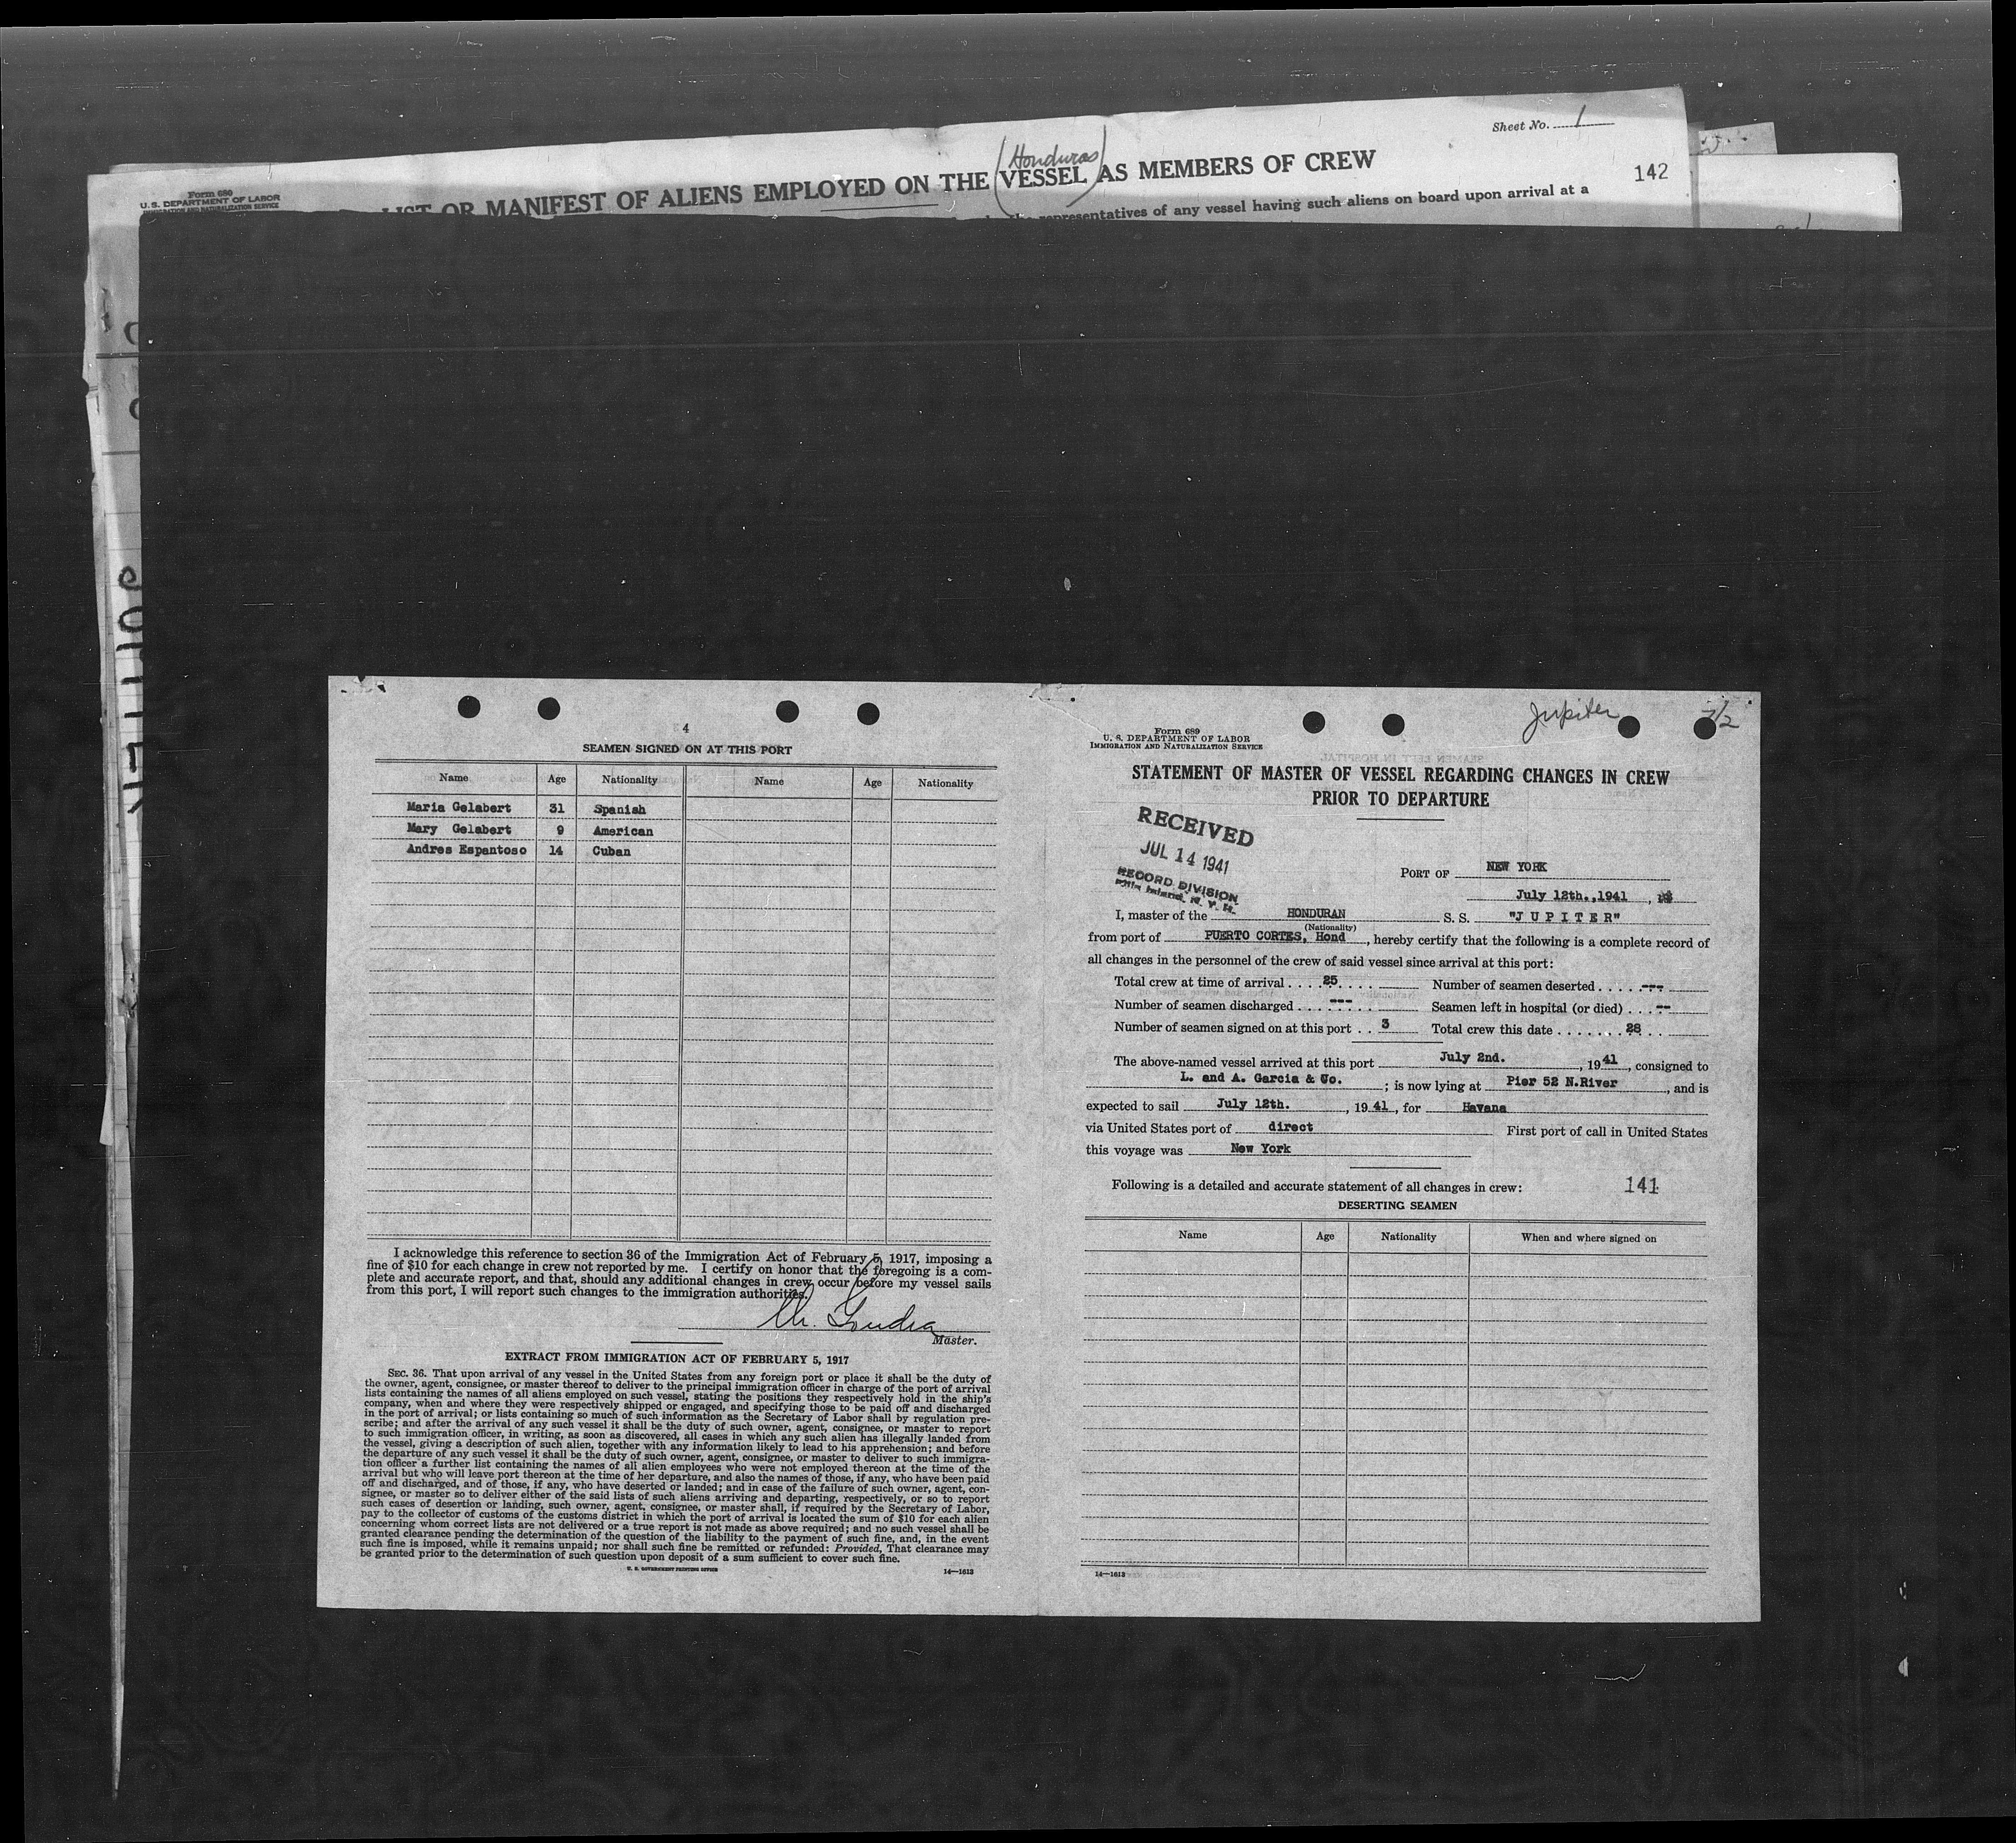 Sheet No. 1
(Honduras)
142
Form 680
U. S. DEPARTMENT OF LABOR
IMMIGRATION AND NATURALIZATION SERVICE
LIST OR MANIFEST OF ALIENS EMPLOYED ON THE VESSEL AS MEMBERS OF CREW
representatives of any vessel having such aliens on board upon arrival at a
JUPITER
4
SEAMEN SIGNED ON AT THIS PORT
Name Age Nationality Name Age Nationality
Maria Gelabert 31 Spanish
Mary Gelabert 9 American
Andres Espantoso 14 Cuban
I acknowledge this reference to section 36 of the Immigration Act of February 5, 1917, imposing a
fine of $10 for each change in crew not reported by me. I certify on honor that the foregoing is a com-
plete and accurate report, and that, should any additional changes in crew occur before my vessel sails
from this port, I will report such changes to the immigration authorities.
Master.
EXTRACT FROM IMMIGRATION ACT OF FEBRUARY 5, 1917
SEC. 36. That upon arrival of any vessel in the United States from any foreign port or place it shall be the duty of
the owner, agent, consignee, or master thereof to deliver to the principal immigration officer in charge of the port of arrival
lists containing the names of all aliens employed on such vessel, stating the positions they respectively hold in the ship's
company, when and where they were respectively shipped or engaged, and specifying those to be paid off and discharged
in the port of arrival; or lists containing so much of such information as the Secretary of Labor shall by regulation pre-
scribe; and after the arrival of any such vessel it shall be the duty of such owner, agent, consignee, or master to report
to such immigration officer, in writing, as soon as discovered, all cases in which any such alien has illegally landed from
the vessel, giving a description of such alien, together with any information likely to lead to his apprehension; and before
the departure of any such vessel it shall be the duty of such owner, agent, consignee, or master to deliver to such immigra-
tion officer a further list containing the names of all alien employees who were not employed thereon at the time of the
arrival but who will leave port thereon at the time of her departure, and also the names of those, if any, who have been paid
off and discharged, and of those, if any, who have deserted or landed; and in case of the failure of such owner, agent, con-
signee, or master so to deliver either of the said lists of such aliens arriving and departing, respectively, or so to report
such cases of desertion or landing, such owner, agent, consignee, or master shall, if required by the Secretary of Labor,
pay to the collector of customs of the customs district in which the port of arrival is located the sum of $10 for each alien
concerning whom correct lists are not delivered or a true report is not made as above required; and no such vessel shall be
granted clearance pending the determination of the question of the liability to the payment of such fine, and, in the event
such fine is imposed, while it remains unpaid; nor shall such fine be remitted or refunded: Provided, That clearance may
be granted prior to the determination of such question upon deposit of a sum sufficient to cover such fine.
U. S. GOVERNMENT PRINTING OFFICE 14—1613
Jupiter 7/2
Form 689
U. S. DEPARTMENT OF LABOR
IMMIGRATION AND NATURALIZATION SERVICE
STATEMENT OF MASTER OF VESSEL REGARDING CHANGES IN CREW
PRIOR TO DEPARTURE
RECEIVED
JUL 14 1941
RECORD DIVISION
Ellis Island, N. Y. H.
PORT OF NEW YORK
July 12th.,1941
I, master of the HONDURAN S. S. "J U P I T E R"
(Nationality)
from port of PUERTO CORTES, Hond, hereby certify that the following is a complete record of
all changes in the personnel of the crew of said vessel since arrival at this port:
Total crew at time of arrival . . . . 25 . . . . Number of seamen deserted . . . . . ---
Number of seamen discharged . . . . --- . . . Seamen left in hospital (or died) . . . --
Number of seamen signed on at this port . . 3 Total crew this date . . . . . . . 28 . .
The above-named vessel arrived at this port July 2nd. , 1941, consigned to
L. and A. Garcia & Co. ; is now lying at Pier 52 N.River , and is
expected to sail July 12th. , 1941, for Havana
via United States port of direct First port of call in United States
this voyage was New York
Following is a detailed and accurate statement of all changes in crew: 141
DESERTING SEAMEN
Name Age Nationality When and where signed on
14—1613